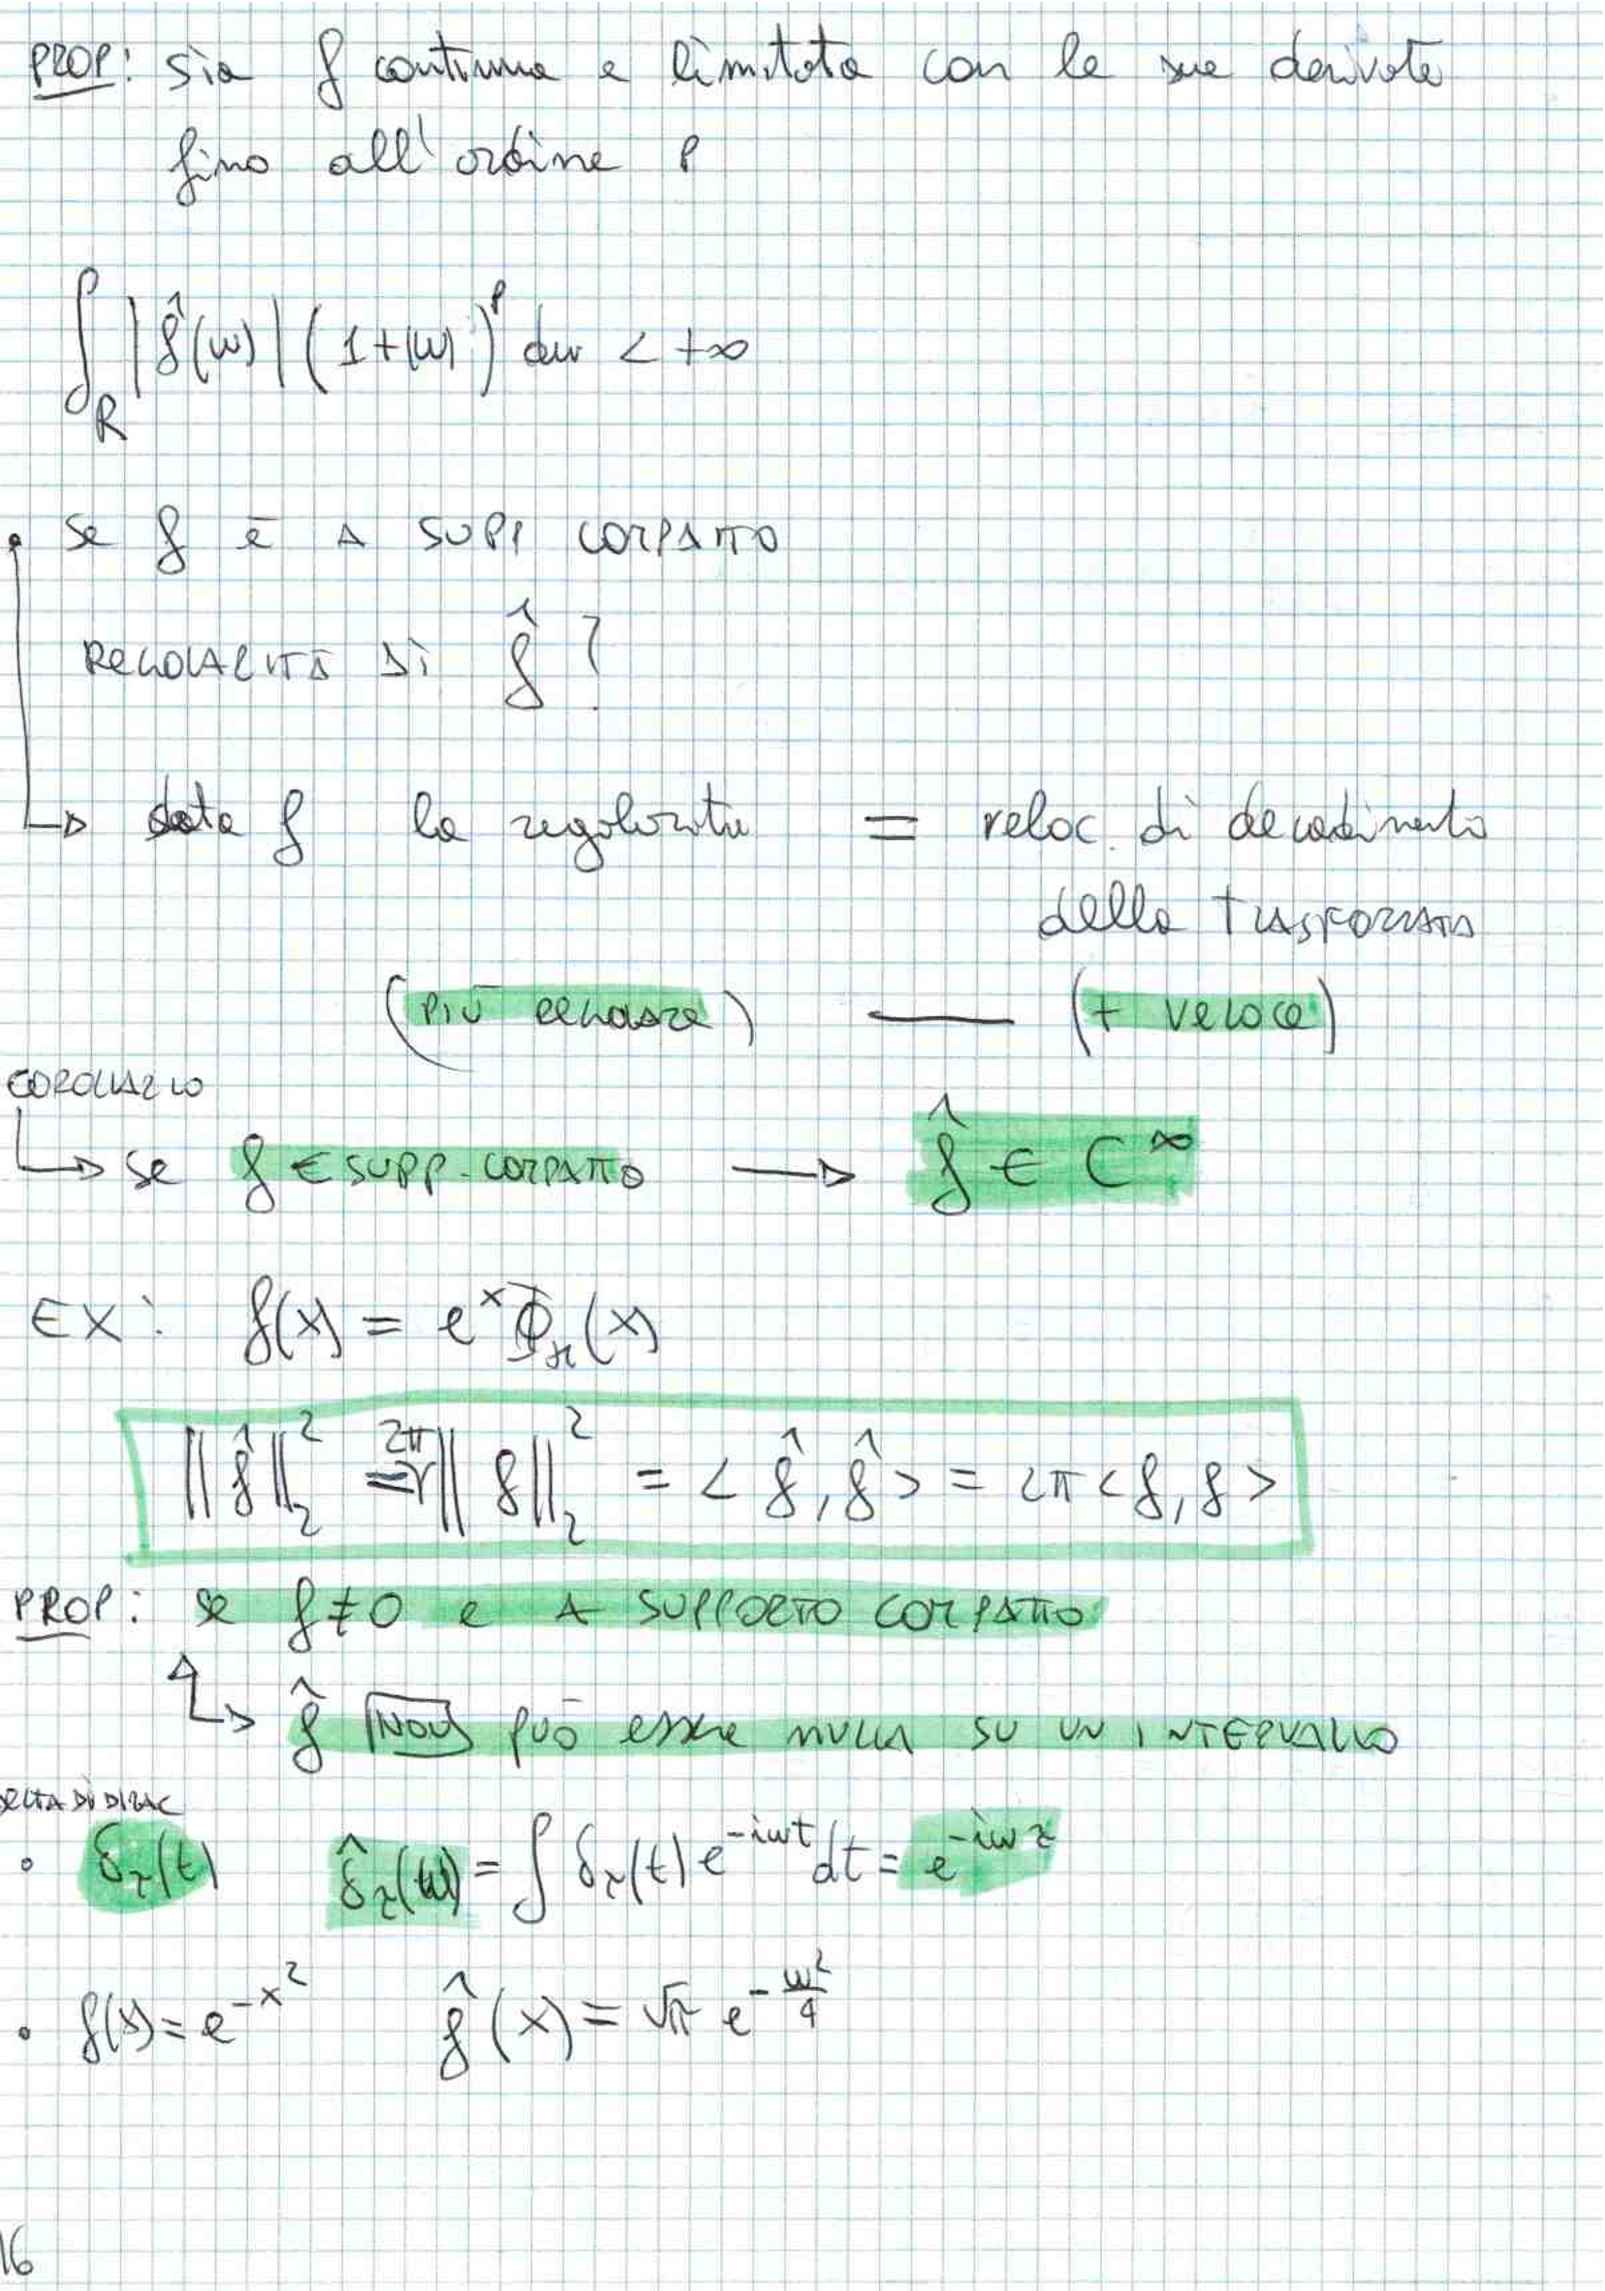 PROP: sia f continua e limitata con le sue derivate
fino all'ordine p
∫_R |f̂(w)| (1+|w|)^p dw < +∞
• se f è A SUPP COMPATTO
REGOLARITÀ DI f̂ ?
↳ data f la regolarità = veloc. di decadimento
della TRASFORMATA
(PIÙ REGOLARE) — (+ veloce)
COROLLARIO
↳ se f ∈ SUPP. COMPATTO → f̂ ∈ C^∞
EX: f(x) = e^x (x)
‖f̂‖₂² = 2π ‖f‖₂² = < f̂, f̂ > = 2π < f, f >
PROP: se f ≠ 0 e A SUPPORTO COMPATTO
↳ f̂ NON può essere nulla SU UN INTERVALLO
DELTA DI DIRAC
• δ_τ(t) δ̂_τ(w) = ∫ δ_τ(t) e^{-iwt} dt = e^{-iwτ}
• f(x) = e^{-x²} f̂(x) = √π e^{-w²/4}
16